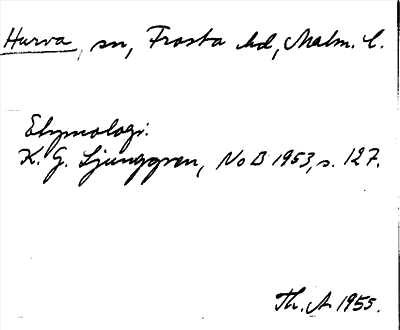 Hurva, sn, Frosta hd, Malm. l.
Etymologi:
K. G. Ljunggren, NoB 1953, s. 127.
Th. A 1955.